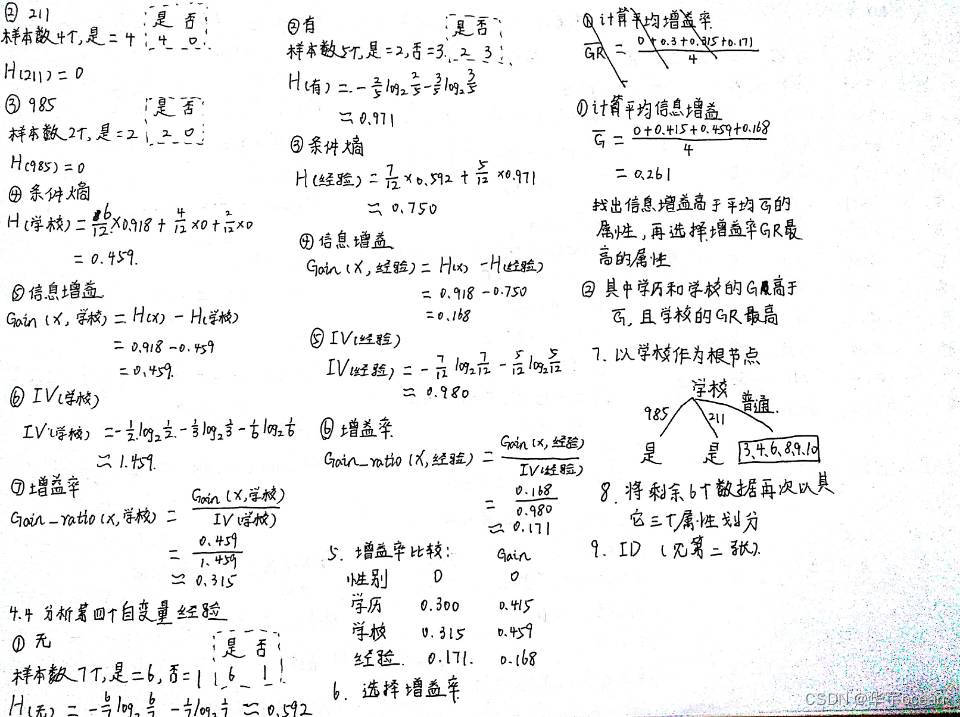 ② 211
是 否
样本数4个,是=4 4 0
H(211)=0
③ 985
是 否
样本数2个,是=2 2 0
H(985)=0
④ 条件熵
H(学校)=6/12×0.918+4/12×0+2/12×0
=0.459.
⑤信息增益
Gain(X,学校)=H(X)-H(学校)
=0.918-0.459
=0.459.
⑥ IV(学校)
IV(学校)=-1/2log₂1/2-1/3log₂1/3-1/6log₂1/6
≈1.459.
⑦增益率
Gain_ratio(X,学校)=Gain(X,学校)/IV(学校)
=0.459/1.459
≈0.315
4.4 分析第四个自变量 经验
① 无
是 否
样本数7个,是=6,否=1 6 1
H(无)=-6/7log₂6/7-1/7log₂1/7≈0.592
②有
是 否
样本数5个,是=2,否=3. 2 3
H(有)=-2/5log₂2/5-3/5log₂3/5
≈0.971
③ 条件熵
H(经验)=7/12×0.592+5/12×0.971
≈0.750
④信息增益
Gain(X,经验)=H(X)-H(经验)
=0.918-0.750
=0.168
⑤ IV(经验)
IV(经验)=-7/12log₂7/12-5/12log₂5/12
≈0.980
⑥ 增益率
Gain_ratio(X,经验)=Gain(X,经验)/IV(经验)
=0.168/0.980
≈0.171
5. 增益率比较: Gain
性别 0 0
学历 0.300 0.415
学校 0.315 0.459
经验. 0.171. 0.168
6. 选择增益率
① 计算平均增益率
GR=0+0.3+0.315+0.171/4
①计算平均信息增益
G=0+0.415+0.459+0.168/4
=0.261
找出信息增益高于平均G的
属性,再选择增益率GR最
高的属性
② 其中学历和学校的G高于
G,且学校的GR最高
7. 以学校作为根节点
学校
985 211 普通.
是 是 3,4,6,8,9,10
8. 将剩余6个数据再次以其
它三个属性划分
9. ID (见第二张).